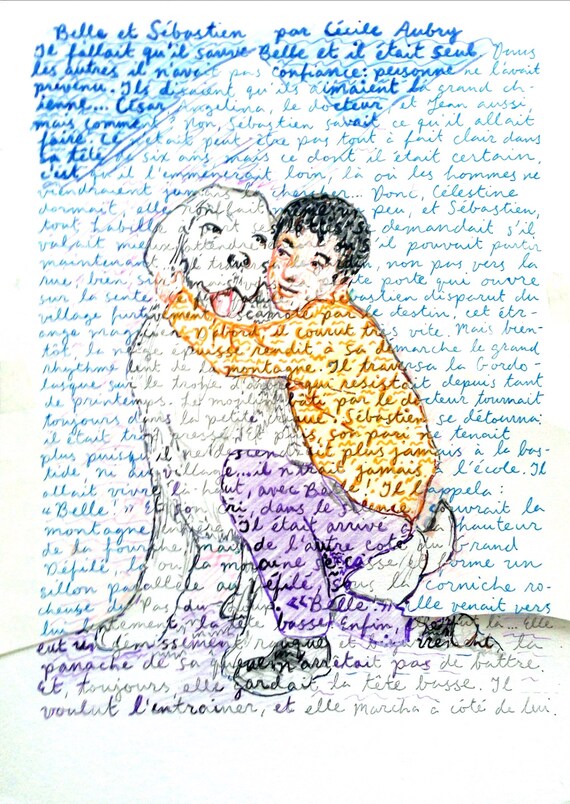 Belle et Sébastien par Cécile Aubry
Il fallait qu'il sauve Belle et il était seul. Dans
les autres il n'avait pas confiance: personne ne l'avait
prévenu. Ils disaient qu'ils aimaient la grand ch-
ienne... César, Angelina, le docteur et Jean aussi,
mais comment? Non, Sébastien savait ce qu'il allait
faire. Ce n'était peut être pas tout à fait clair dans
sa tête de six ans, mais ce dont il était certain,
c'est qu'il l'emmènerait loin, là où les hommes ne
viendraient jamais la chercher... Donc, Célestine
dormait, elle ronflait même un peu, et Sébastien,
tout habillé se demandait s'il
valait mieux attendre ou s'il pouvait partir
maintenant il non pas vers la
rue, bien sûr porte qui ouvre
sur la sente. Sébastien disparut du
village furtivement escamoté par ce destin, cet étr-
ange magicien. D'abord il courut très vite. Mais bien-
tôt, la neige épaisse rendit à sa démarche le grand
rhythme lent de la montagne. Il traversa la Gordo-
lasque sur le tronc d'arbre qui résistait depuis tant
de printemps. Le moulin bâti par le docteur tournait
toujours dans la petite crique, Sébastien se détourna:
il était trop pressé. Et puis, son pari ne tenait
plus puisqu'il ne descendrait plus jamais à la bas-
tide ni au village... il n'irait jamais à l'école. Il
allait vivre là-haut, avec Belle! Il l'appela:
«Belle!» Et son cri, dans le silence, couvrait la
montagne entière. Il était arrivé à la hauteur
de la fourche, mais de l'autre coté du Grand
Défilé, là où la moraine se casse et forme un
sillon parallèle au défilé, sous la corniche ro-
cheuse du Pas du Loup. «Belle!» Elle venait vers
lui lentement, la tête basse. Enfin, là... Elle
eut un gémissement rauque et la
panache de sa queue n'arrêtait pas de battre.
Et, toujours elle gardait la tête basse. Il
voulut l'entraîner, et elle marcha à côté de lui.